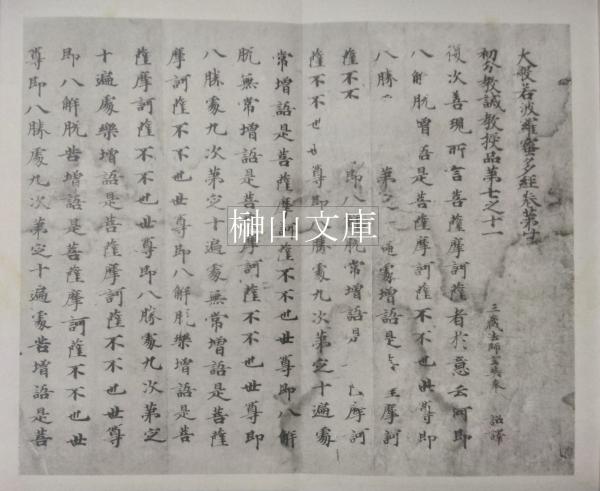 大般若波羅蜜多經卷第
初分教誡教授品第七之十一
三藏法師玄奘奉 詔譯
復次善現所言菩薩摩訶薩者於意云何即
八解脫增語是菩薩摩訶薩不不也世尊即
八勝 第 遍處增語是 摩訶
薩不不 即八 脫常增語是 摩訶
薩不不也世尊即八勝處九次第定十遍處
常增語是菩薩摩訶薩不不也世尊即八解
脫無常增語是菩薩摩訶薩不不也世尊即
八勝處九次第定十遍處無常增語是菩薩
摩訶薩不不也世尊即八解脫樂增語是菩
薩摩訶薩不不也世尊即八勝處九次第定
十遍處樂增語是菩薩摩訶薩不不也世尊
即八解脫苦增語是菩薩摩訶薩不不也世
尊即八勝處九次第定十遍處苦增語是菩
榊山文庫